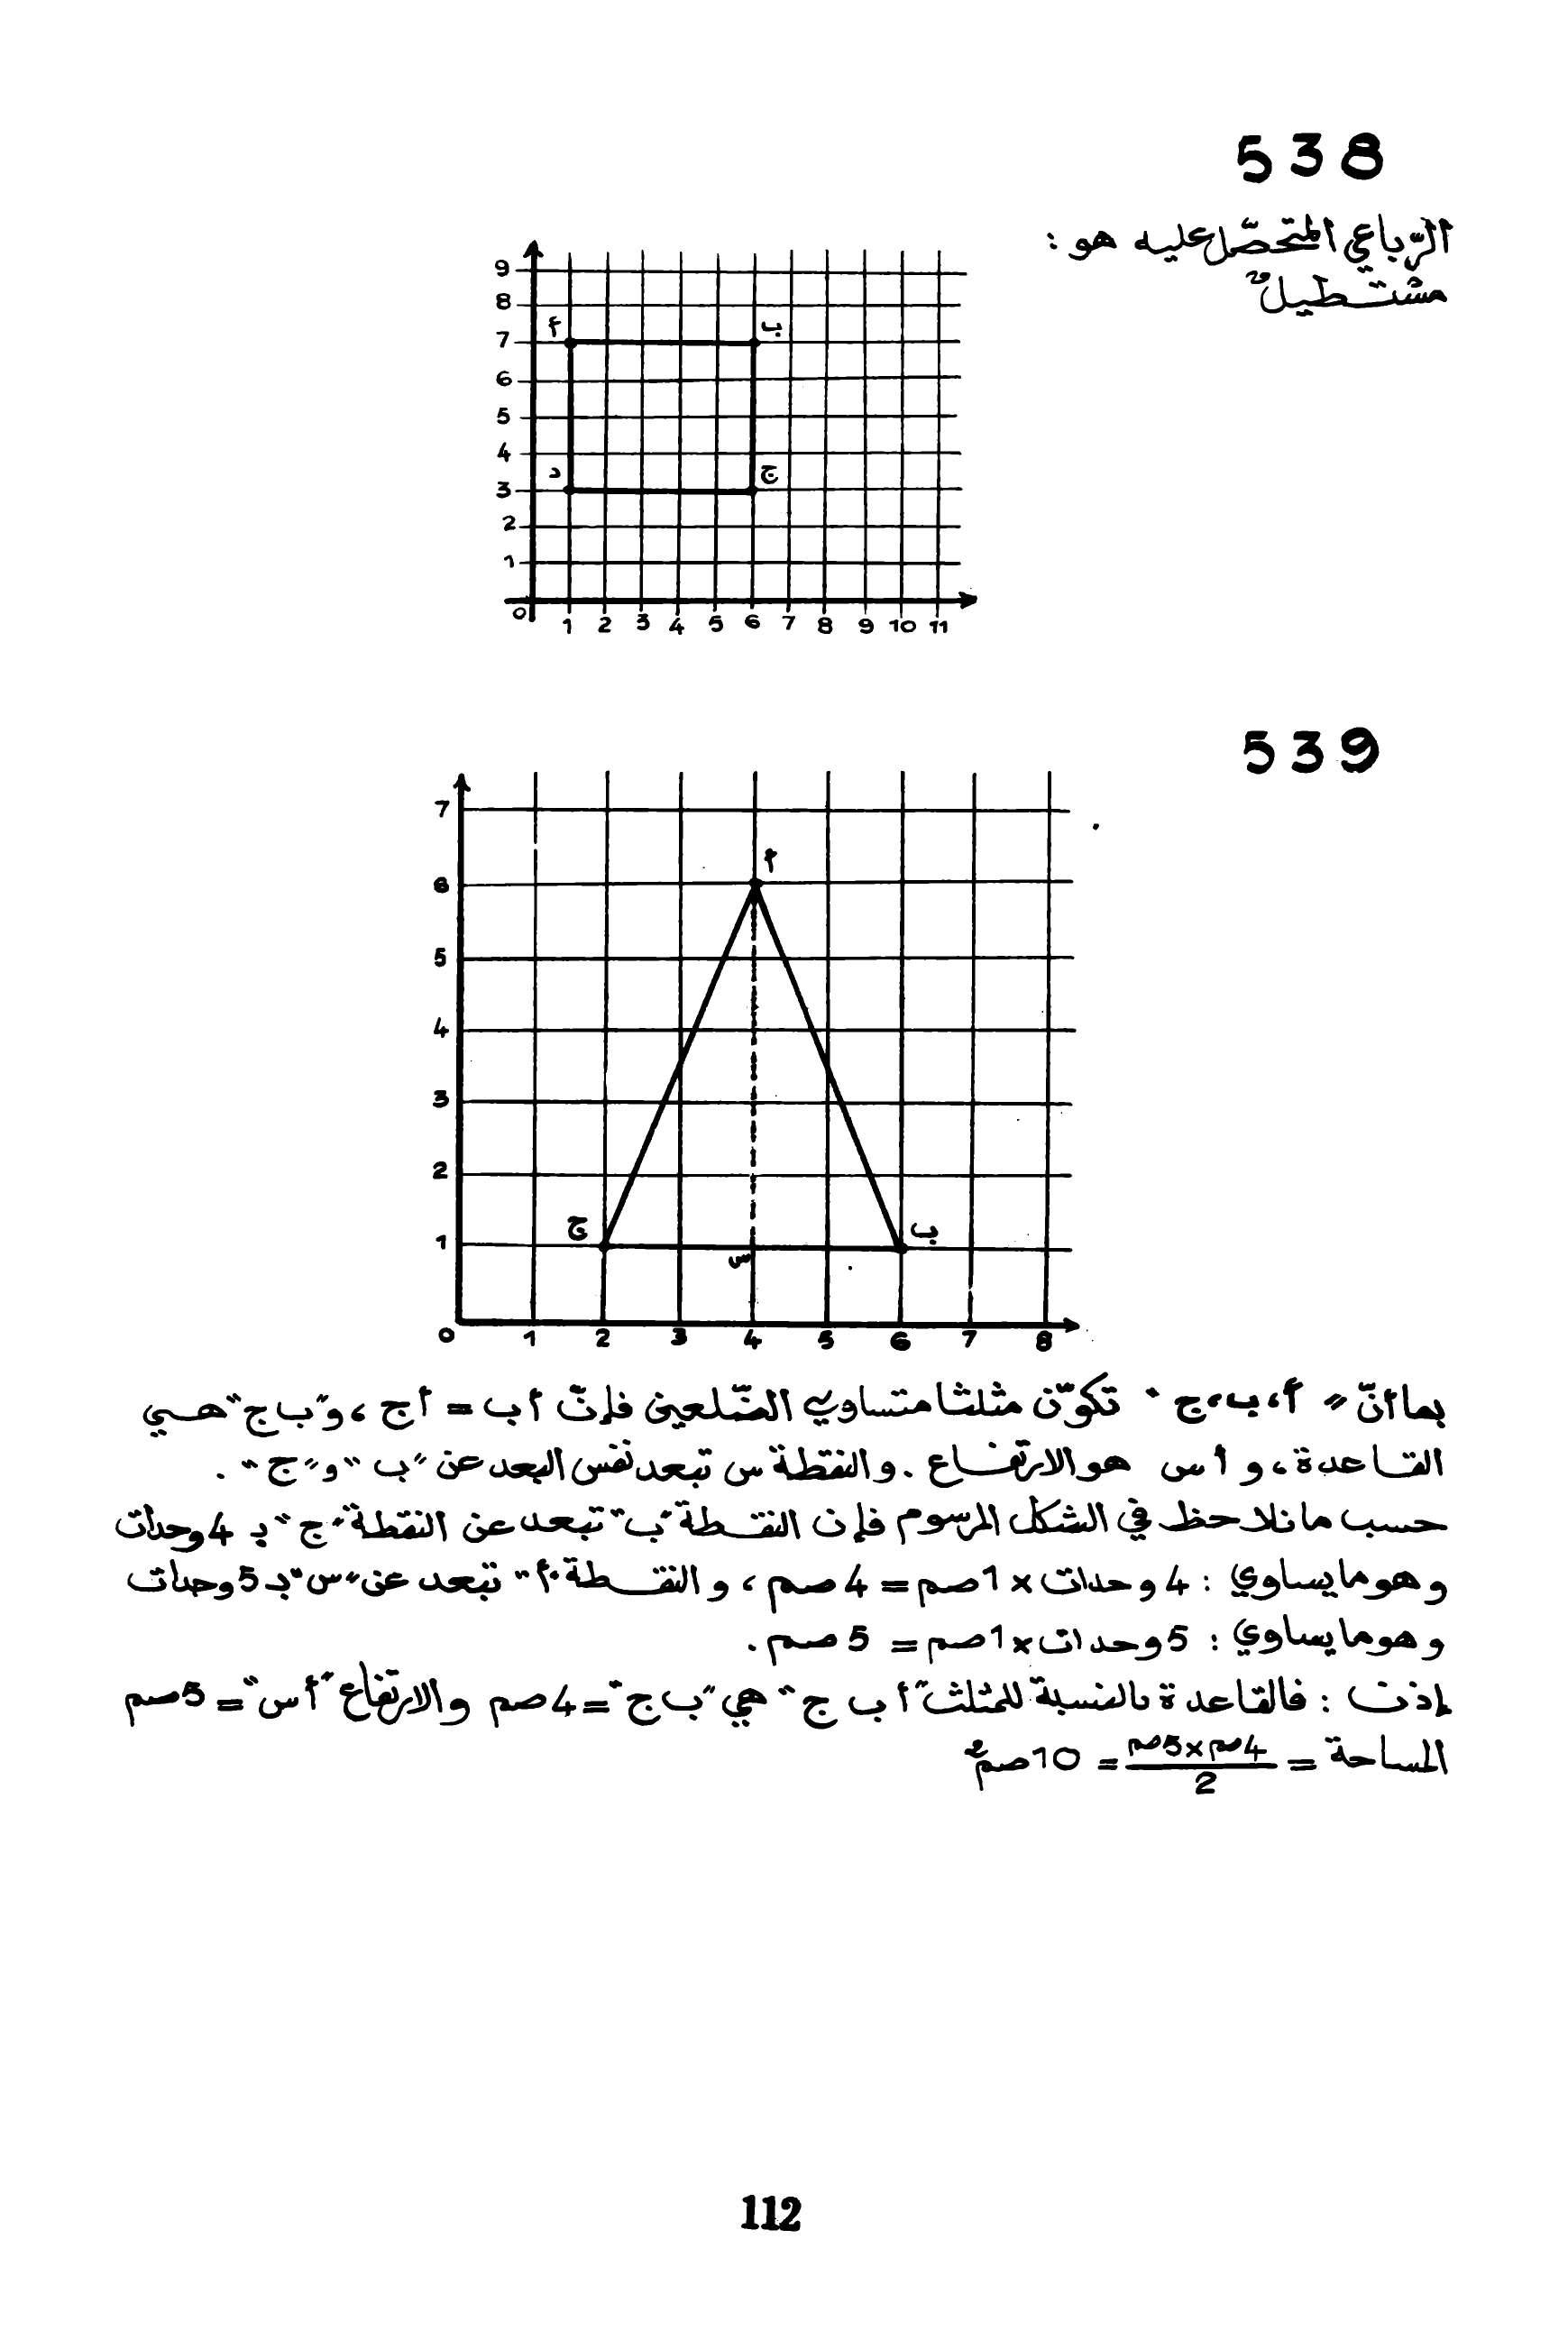 538
الرّباعي المتحصّل عليه هو :
مستطيلٌ
9
8
7
6
5
4
3
2
1
0
أ
ب
د
ج
1 2 3 4 5 6 7 8 9 10 11
539
7
6
5
4
3
2
1
0
أ
ج
ب
س
1 2 3 4 5 6 7 8
بما أنّ " أ، ب، ج " تكوّن مثلثا متساوي الضّلعين فإنّ أ ب = أ ج ، و"ب ج" هي
القاعدة ، و أ س هو الارتفاع . والنقطة س تبعد نفس البعد عن "ب" و"ج" .
حسب ما نلاحظ في الشكل المرسوم فإن النقطة "ب" تبعد عن النقطة "ج" بـ 4 وحدات
وهو ما يساوي : 4 وحدات × 1 صم = 4 صم ، والنقطة "أ" تبعد عن "س" بـ 5 وحدات
وهو ما يساوي : 5 وحدات × 1 صم = 5 صم .
إذن : فالقاعدة بالنسبة للمثلث "أ ب ج" هي "ب ج" = 4 صم والارتفاع "أ س" = 5 صم
المساحة = 4 صم × 5 صم / 2 = 10 صم²
112